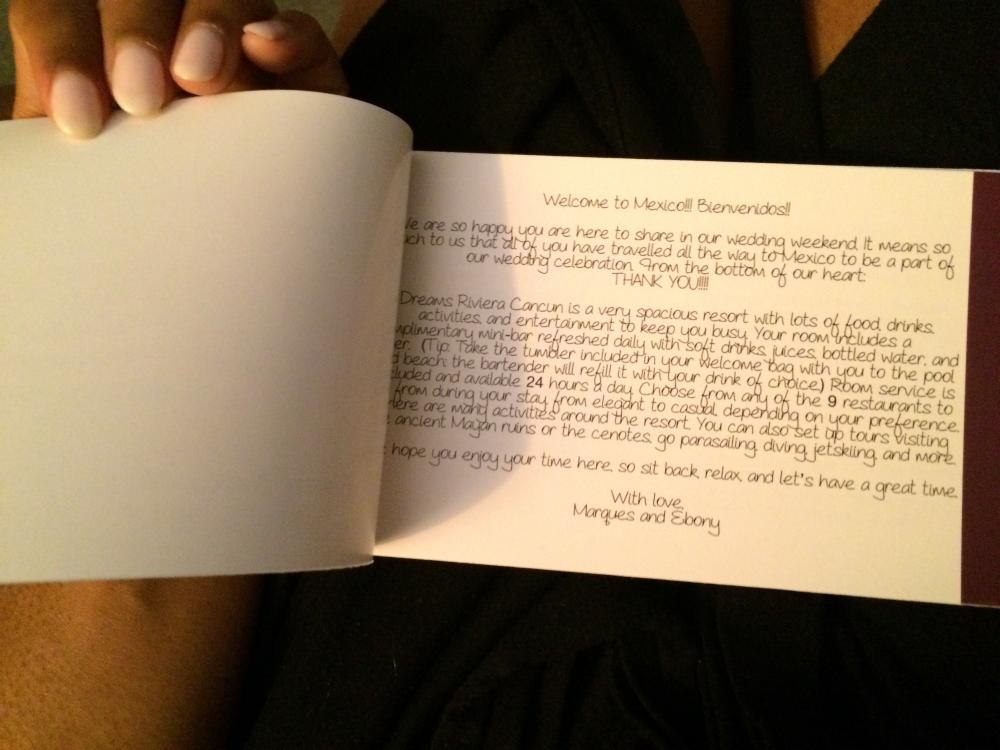 Welcome to Mexico!!! Bienvenidos!!
are so happy you are here to share in our wedding weekend. It means so
to us that all of you have travelled all the way to Mexico to be a part of
our wedding celebration. From the bottom of our heart:
THANK YOU!!!!
Dreams Riviera Cancun is a very spacious resort with lots of food, drinks,
activities, and entertainment to keep you busy. Your room includes a
mini-bar refreshed daily with soft drinks, juices, bottled water, and
(Tip: Take the tumbler included in your welcome bag with you to the pool
beach; the bartender will refill it with your drink of choice.) Room service is
and available 24 hours a day. Choose from any of the 9 restaurants to
from during your stay from elegant to casual depending on your preference.
are many activities around the resort. You can also set up tours visiting
ancient Mayan ruins or the cenotes, go parasailing, diving, jetskiing, and more.
hope you enjoy your time here, so sit back, relax, and let's have a great time.
With love,
Marques and Ebony